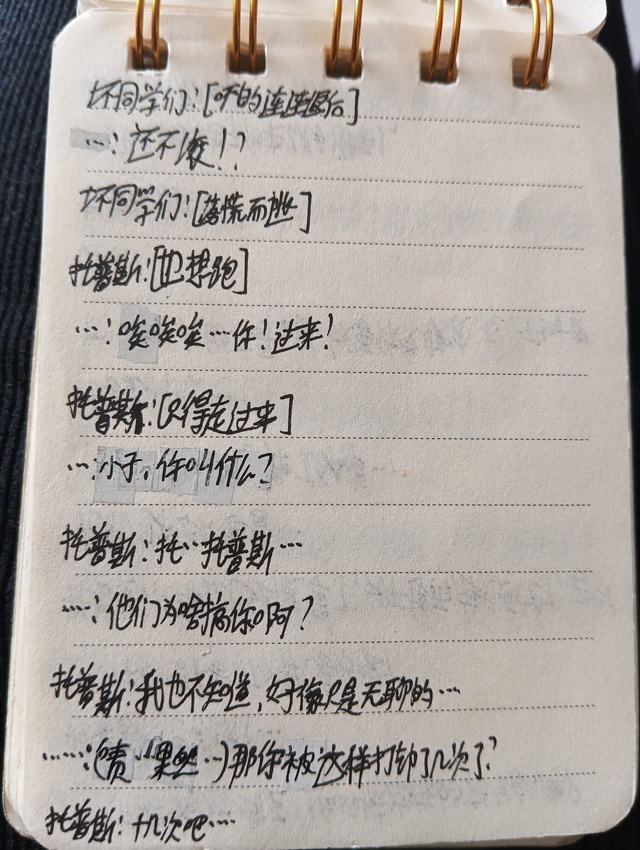 坏同学们：[吓的连连退后]
…：还不滚！？
坏同学们：[落慌而逃]
托普斯：[也想跑]
…：唉唉唉…你！过来！
托普斯：[只得走过来]
…：小子，你叫什么？
托普斯：托…托普斯…
……：他们为啥搞你啊？
托普斯：我也不知道，好像只是无聊的…
……：(啧…果然…)那你被这样打劫了几次了？
托普斯：十几次吧…